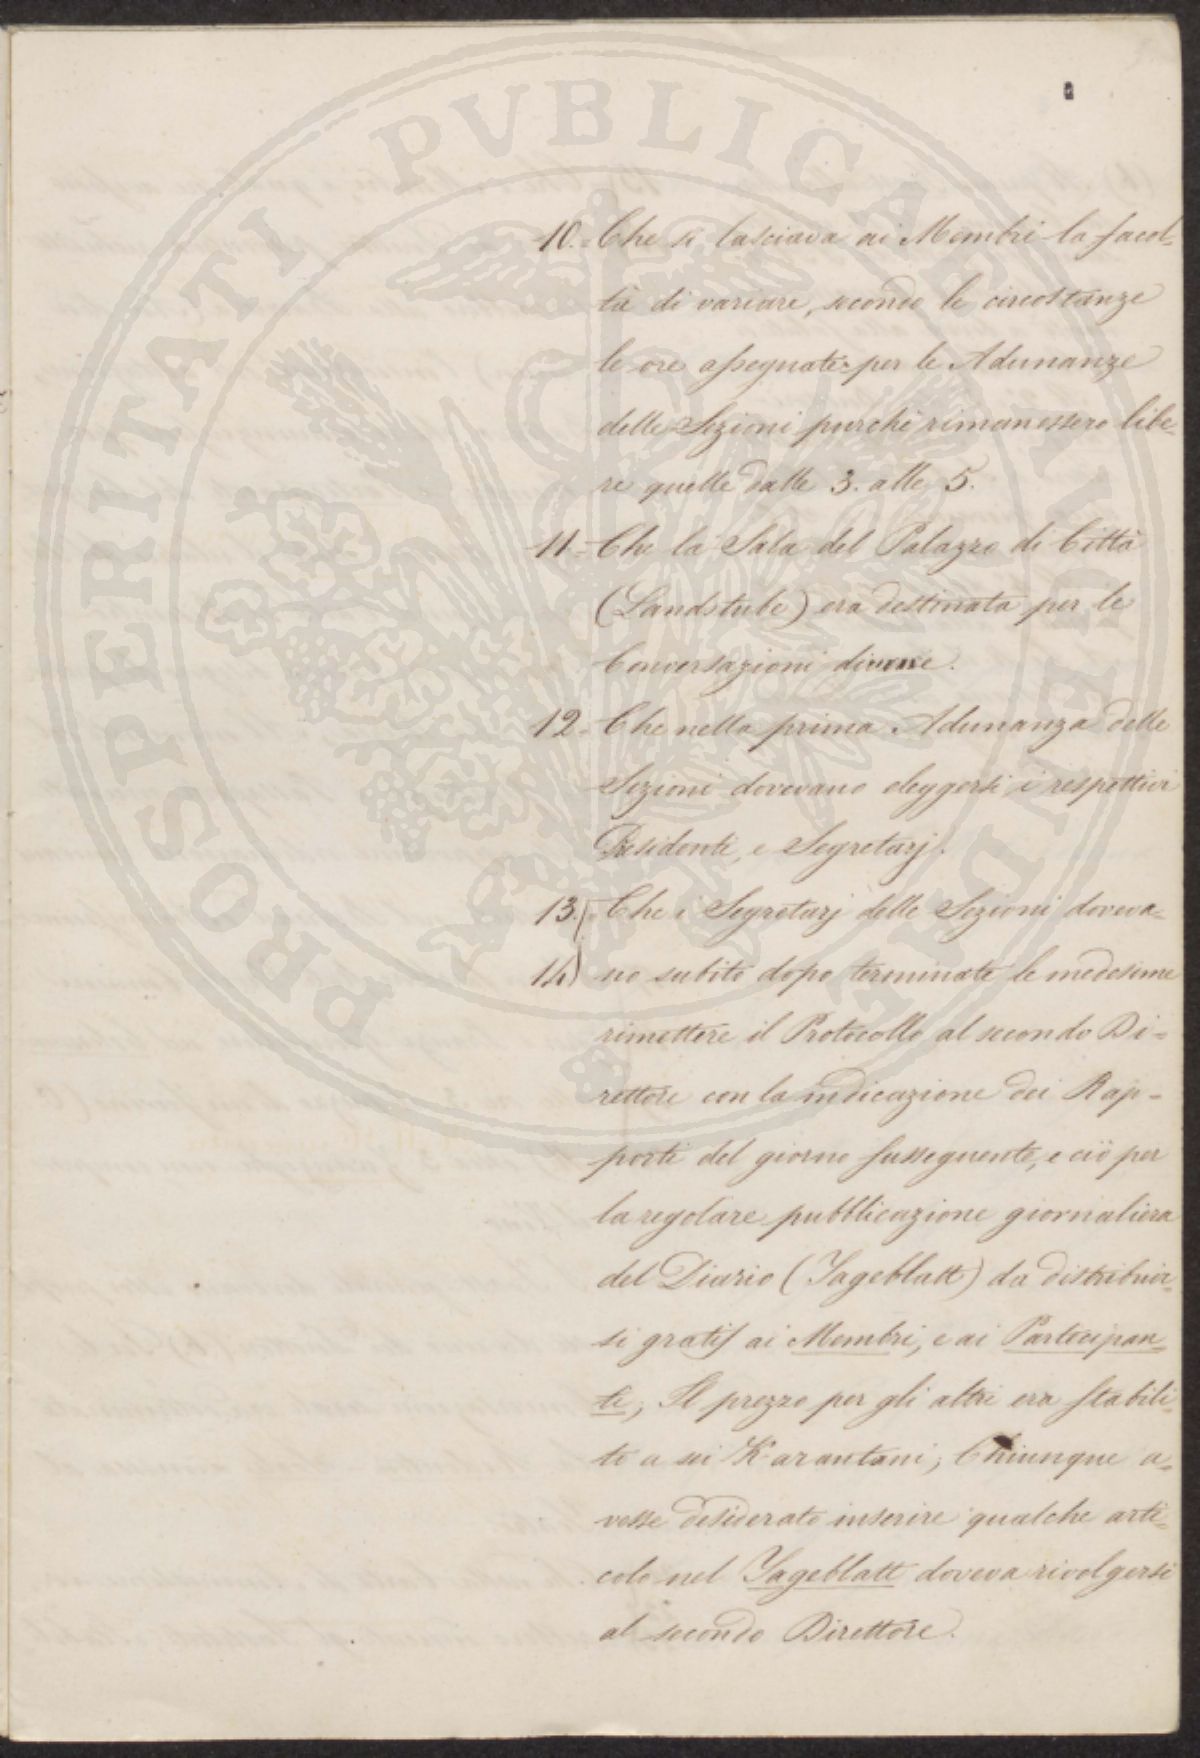 PROSPERITATI PVBLICAE AVGENDAE
10. Che si lasciava ai Membri la facol-
tà di variare, secondo le circostanze
le ore assegnate per le Adunanze
delle Sezioni purchè rimanessero libe-
re quelle dalle 3. alle 5.
11. Che la Sala del Palazzo di Città
(Landstube) era destinata per le
Conversazioni diurne.
12. Che nella prima Adunanza delle
Sezioni dovevano eleggersi i respettivi
Presidenti, e Segretarj.
13. Che i Segretarj delle Sezioni doveva-
14) no subito dopo terminate le medesime
rimettere il Protocollo al secondo Di-
rettore con la indicazione dei Rap-
porti del giorno susseguente, e ciò per
la regolare pubblicazione giornaliera
del Diario (Tageblatt) da distribuir-
si gratis ai Membri, e ai Partecipan-
ti; Il prezzo per gli altri era stabili-
to a sei Karantani; Chiunque a-
vesse desiderato inserire qualche arti-
colo nel Tageblatt doveva rivolgersi
al secondo Direttore.